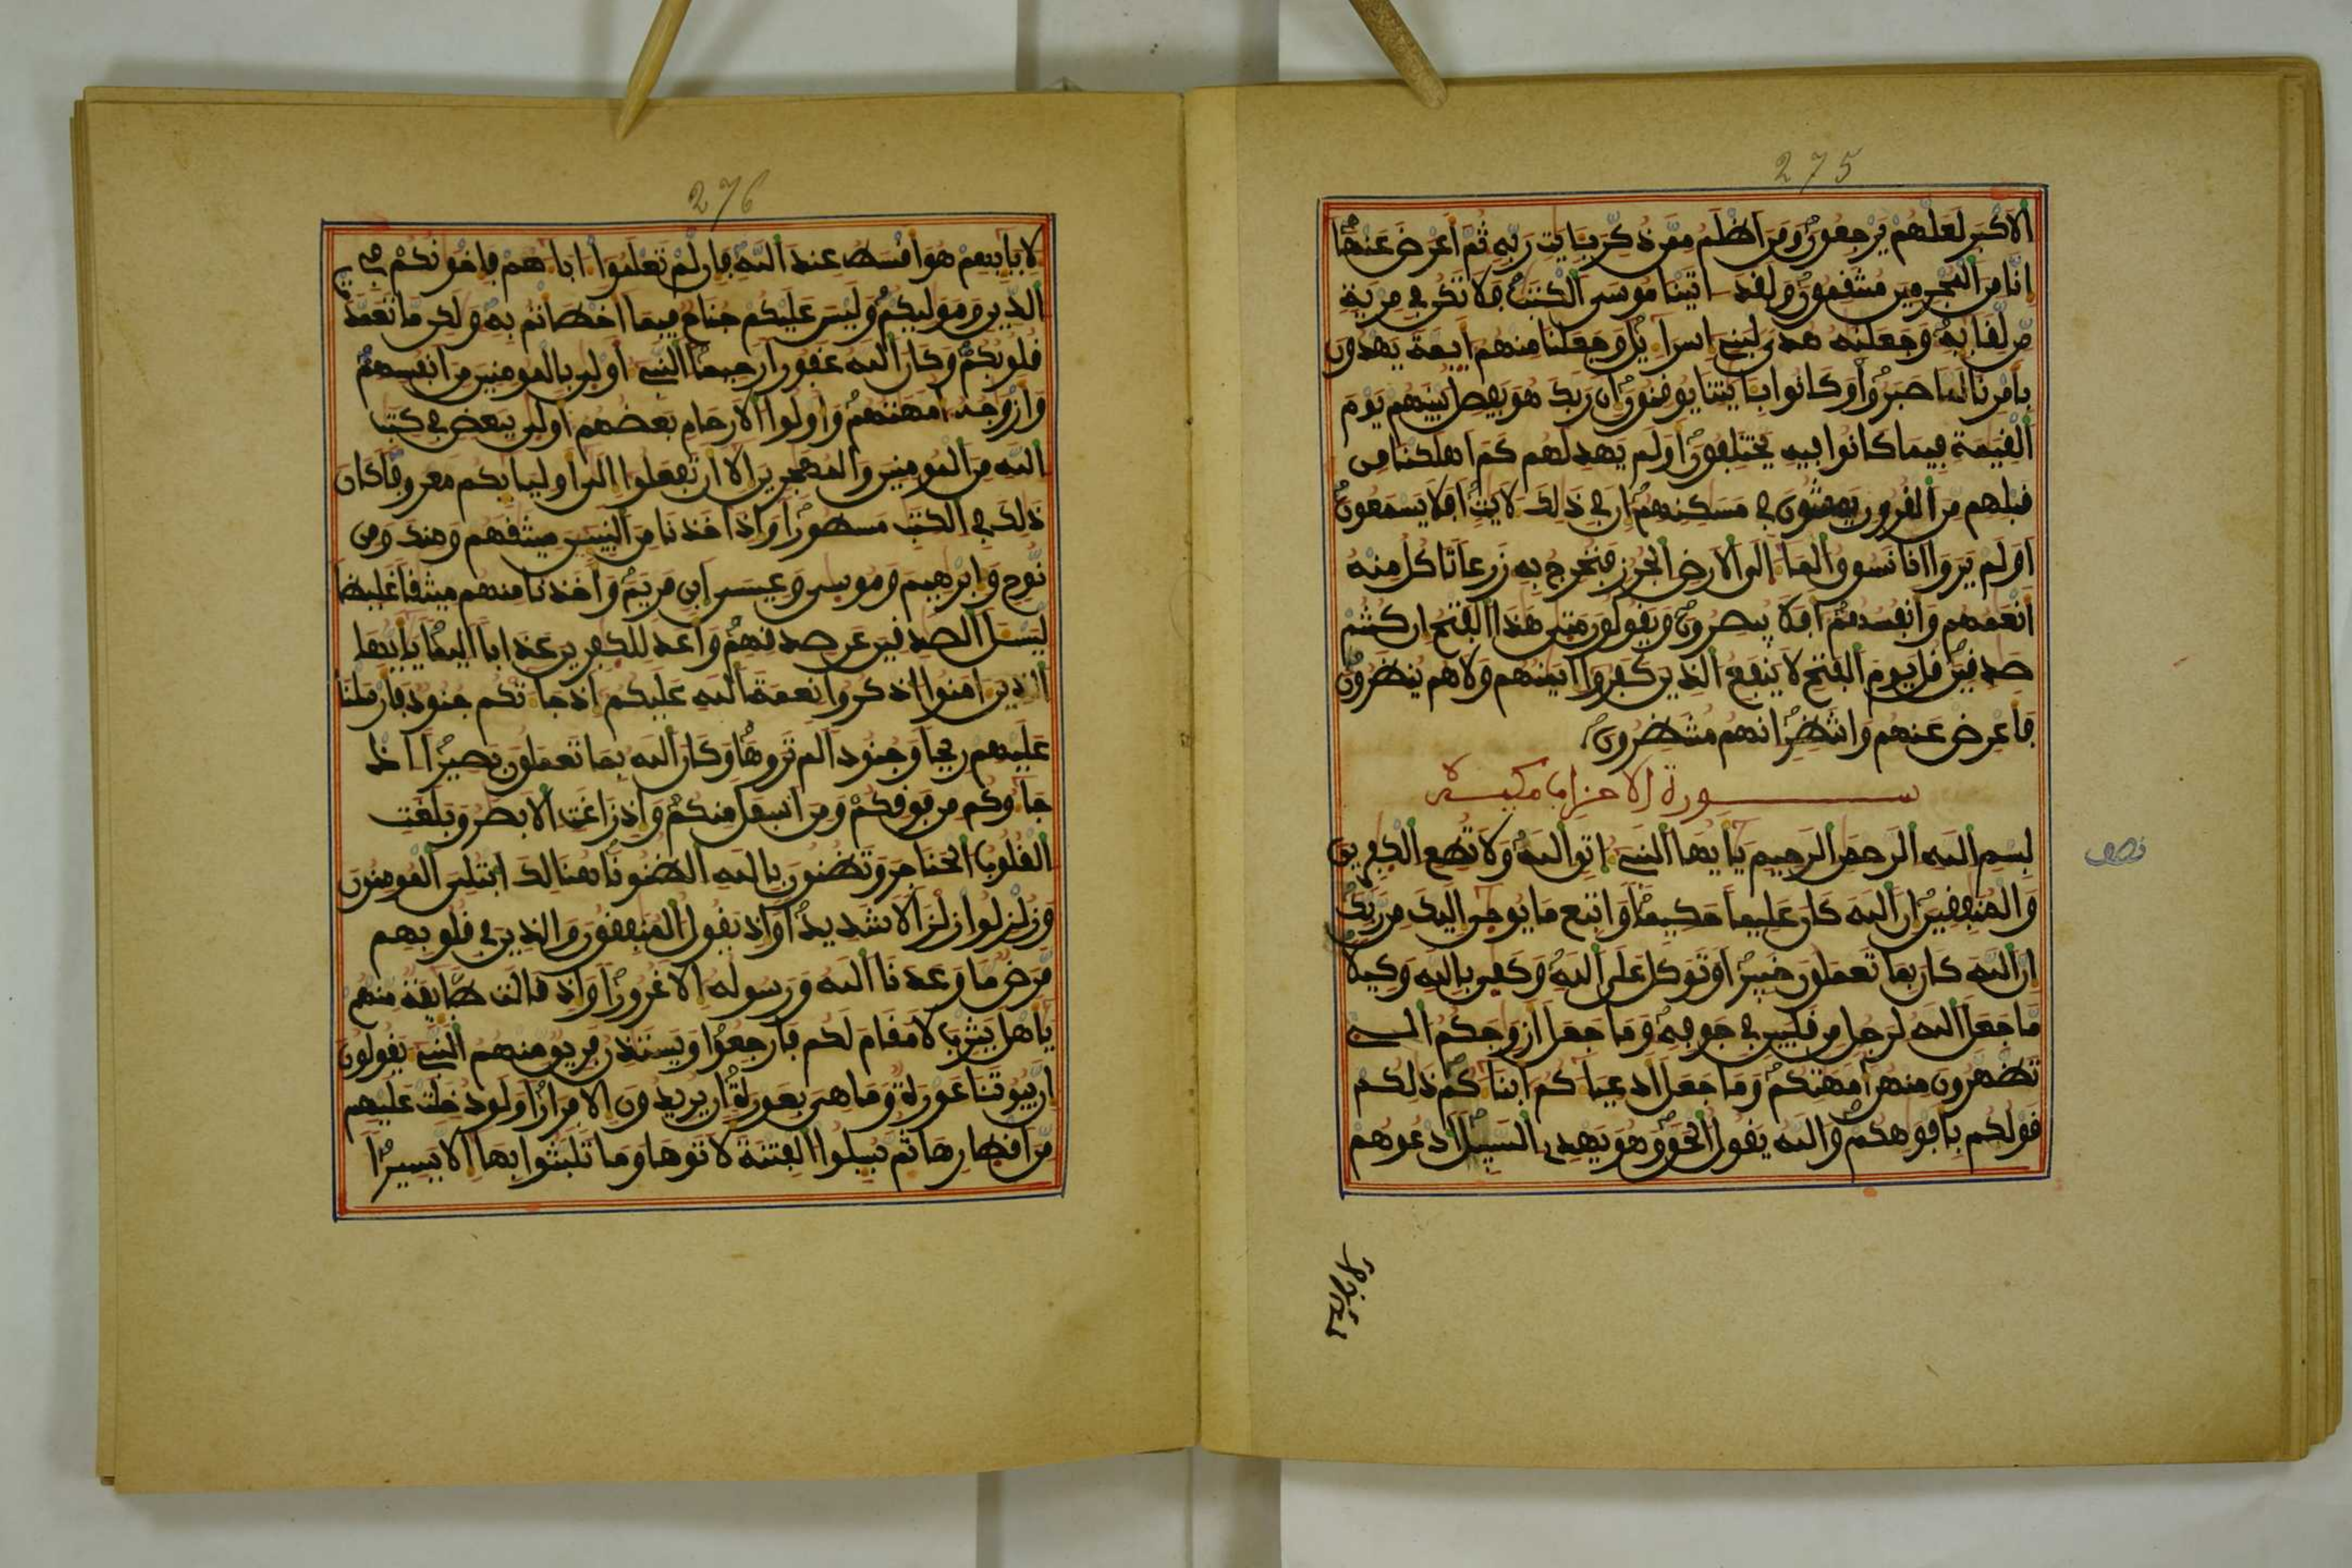 275
الاكبر لعلهم يرجعون ومن اظلم ممن ذكر بـايت ربه ثم اعرض عنها
انا من المجرمين منتقمون ولقد اتينا موسى الكتب فلا تكن في مرية
من لقايه وجعلنه هدى لبني اسراءيل وجعلنا منهم ايمة يهدون
بامرنا لما صبروا وكانوا بـايتنا يوقنون ان ربك هو يفصل بينهم يوم
القيمة فيما كانوا فيه يختلفون اولم يهد لهم كم اهلكنا من
قبلهم من القرون يمشون في مسكنهم ان في ذلك لايت افلا يسمعون
اولم يروا انا نسوق الما الى الارض الجرز فنخرج به زرعا تاكل منه
انعمهم وانفسهم افلا يبصرون ويقولون متى هذا الفتح ان كنتم
صدقين قل يوم الفتح لا ينفع الذين كفروا ايمنهم ولا هم ينظرون
فاعرض عنهم وانتظر انهم منتظرون
سورة الاحزاب
بسم الله الرحمن الرحيم يايها النبي اتق الله ولا تطع الكفرين
نصف
والمنفقين ان الله كان عليما حكيما واتبع ما يوحى اليك من ربك
ان الله كان بما تعملون خبيرا وتوكل على الله وكفى بالله وكيلا
ما جعل الله لرجل من قلبين في جوفه وما جعل ازوجكم الي
تظهرون منهن امهتكم وما جعل ادعياكم ابناكم ذلكم
قولكم بافوهكم والله يقول الحق وهو يهدي السبيل ادعوهم
276
لابايهم هو اقسط عند الله فان لم تعلموا اباهم فاخونكم في
الدين وموليكم وليس عليكم جناح فيما اخطاتم به ولكن ما تعمدت
قلوبكم وكان الله غفورا رحيما النبي اولى بالمومنين من انفسهم
وازوجه امهتهم واولوا الارحام بعضهم اولى ببعض في كتب
الله من المومنين والمهجرين الا ان تفعلوا الى اوليايكم معروفا كان
ذلك في الكتب مسطورا واذ اخذنا من النبيين ميثقهم ومنك ومن
نوح وابرهيم وموسى وعيسى ابن مريم واخذنا منهم ميثقا غليظا
ليسل الصدقين عن صدقهم واعد للكفرين عذابا اليما يايها
الذين امنوا اذكروا نعمة الله عليكم اذ جاتكم جنود فارسلنا
عليهم ريحا وجنودا لم تروها وكان الله بما تعملون بصيرا اذ
جاوكم من فوقكم ومن اسفل منكم واذ زاغت الابصر وبلغت
القلوب الحناجر وتظنون بالله الظنونا هنالك ابتلي المومنون
وزلزلوا زلزالا شديدا واذ يقول المنفقون والذين في قلوبهم
مرض ما وعدنا الله ورسوله الا غرورا واذ قالت طايفة منهم
ياهل يثرب لا مقام لكم فارجعوا ويستذن فريق منهم النبي يقولون
ان بيوتنا عورة وما هي بعورة ان يريدون الا فرارا ولو دخلت عليهم
من اقطارها ثم سيلوا الفتنة لاتوها وما تلبثوا بها الا يسيرا